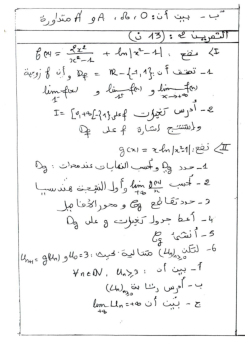 ب - بين أن: O، Ω، A و A' متداورة
التمرين 2: (13 ن)
I) نضع: f(x) = 2x²/(x²-1) + ln|x²-1|
1- تحقق أن: Df = ℝ-{-1;1} وأن f زوجية
lim f(x) و lim f(x) و lim f(x)
2- أدرس تغيرات f على I = [0;1[∪]1;+∞[
واستنتج إشارة f على Df
II) نضع: g(x) = x·ln|x²-1|
1- حدد Dg واحسب النهايات عند محدات Dg
2- احسب lim g(x)/x وأول النتيجة هندسيا
3- حدد تقاطع Cg ومحور الأفاصيل
4- أعط جدول تغيرات g على Dg
5- أنشئ Cg
6- لتكن (Un)n≥0 متتالية بحيث: U0=3 و Un+1 = g(Un)
أ- بين أن: ∀n∈ℕ، Un≥3
ب- أدرس رتابة (Un)n≥0
ج- بين أن lim Un = +∞